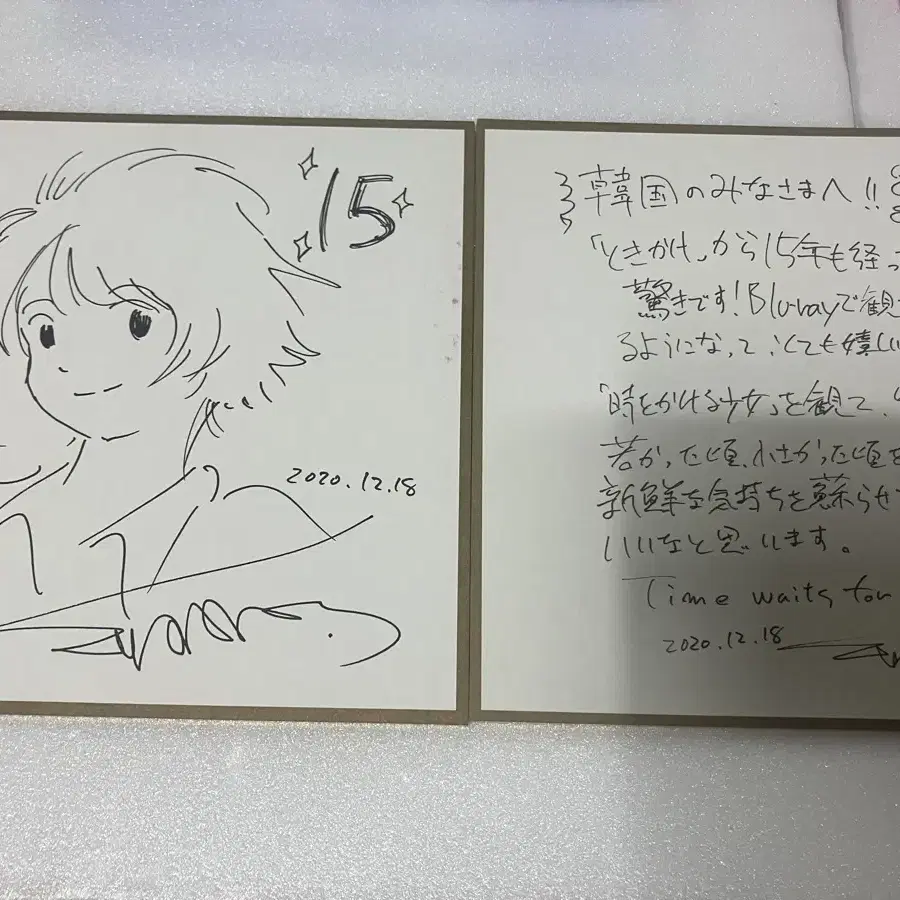 15
2020.12.18
韓国のみなさまへ!!
「ときかけ」から15年も経っ
驚きです!Blu-rayで観
るようになって、とても嬉しい
「時をかける少女」を観て、
若かった頃、小さかった頃を
新鮮な気持ちを蘇らせ
いいなと思います。
Time waits for
2020.12.18